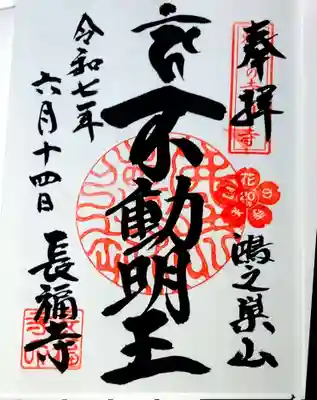 奉拝
鴫之巣山
不動明王
令和七年
六月十四日
長福寺